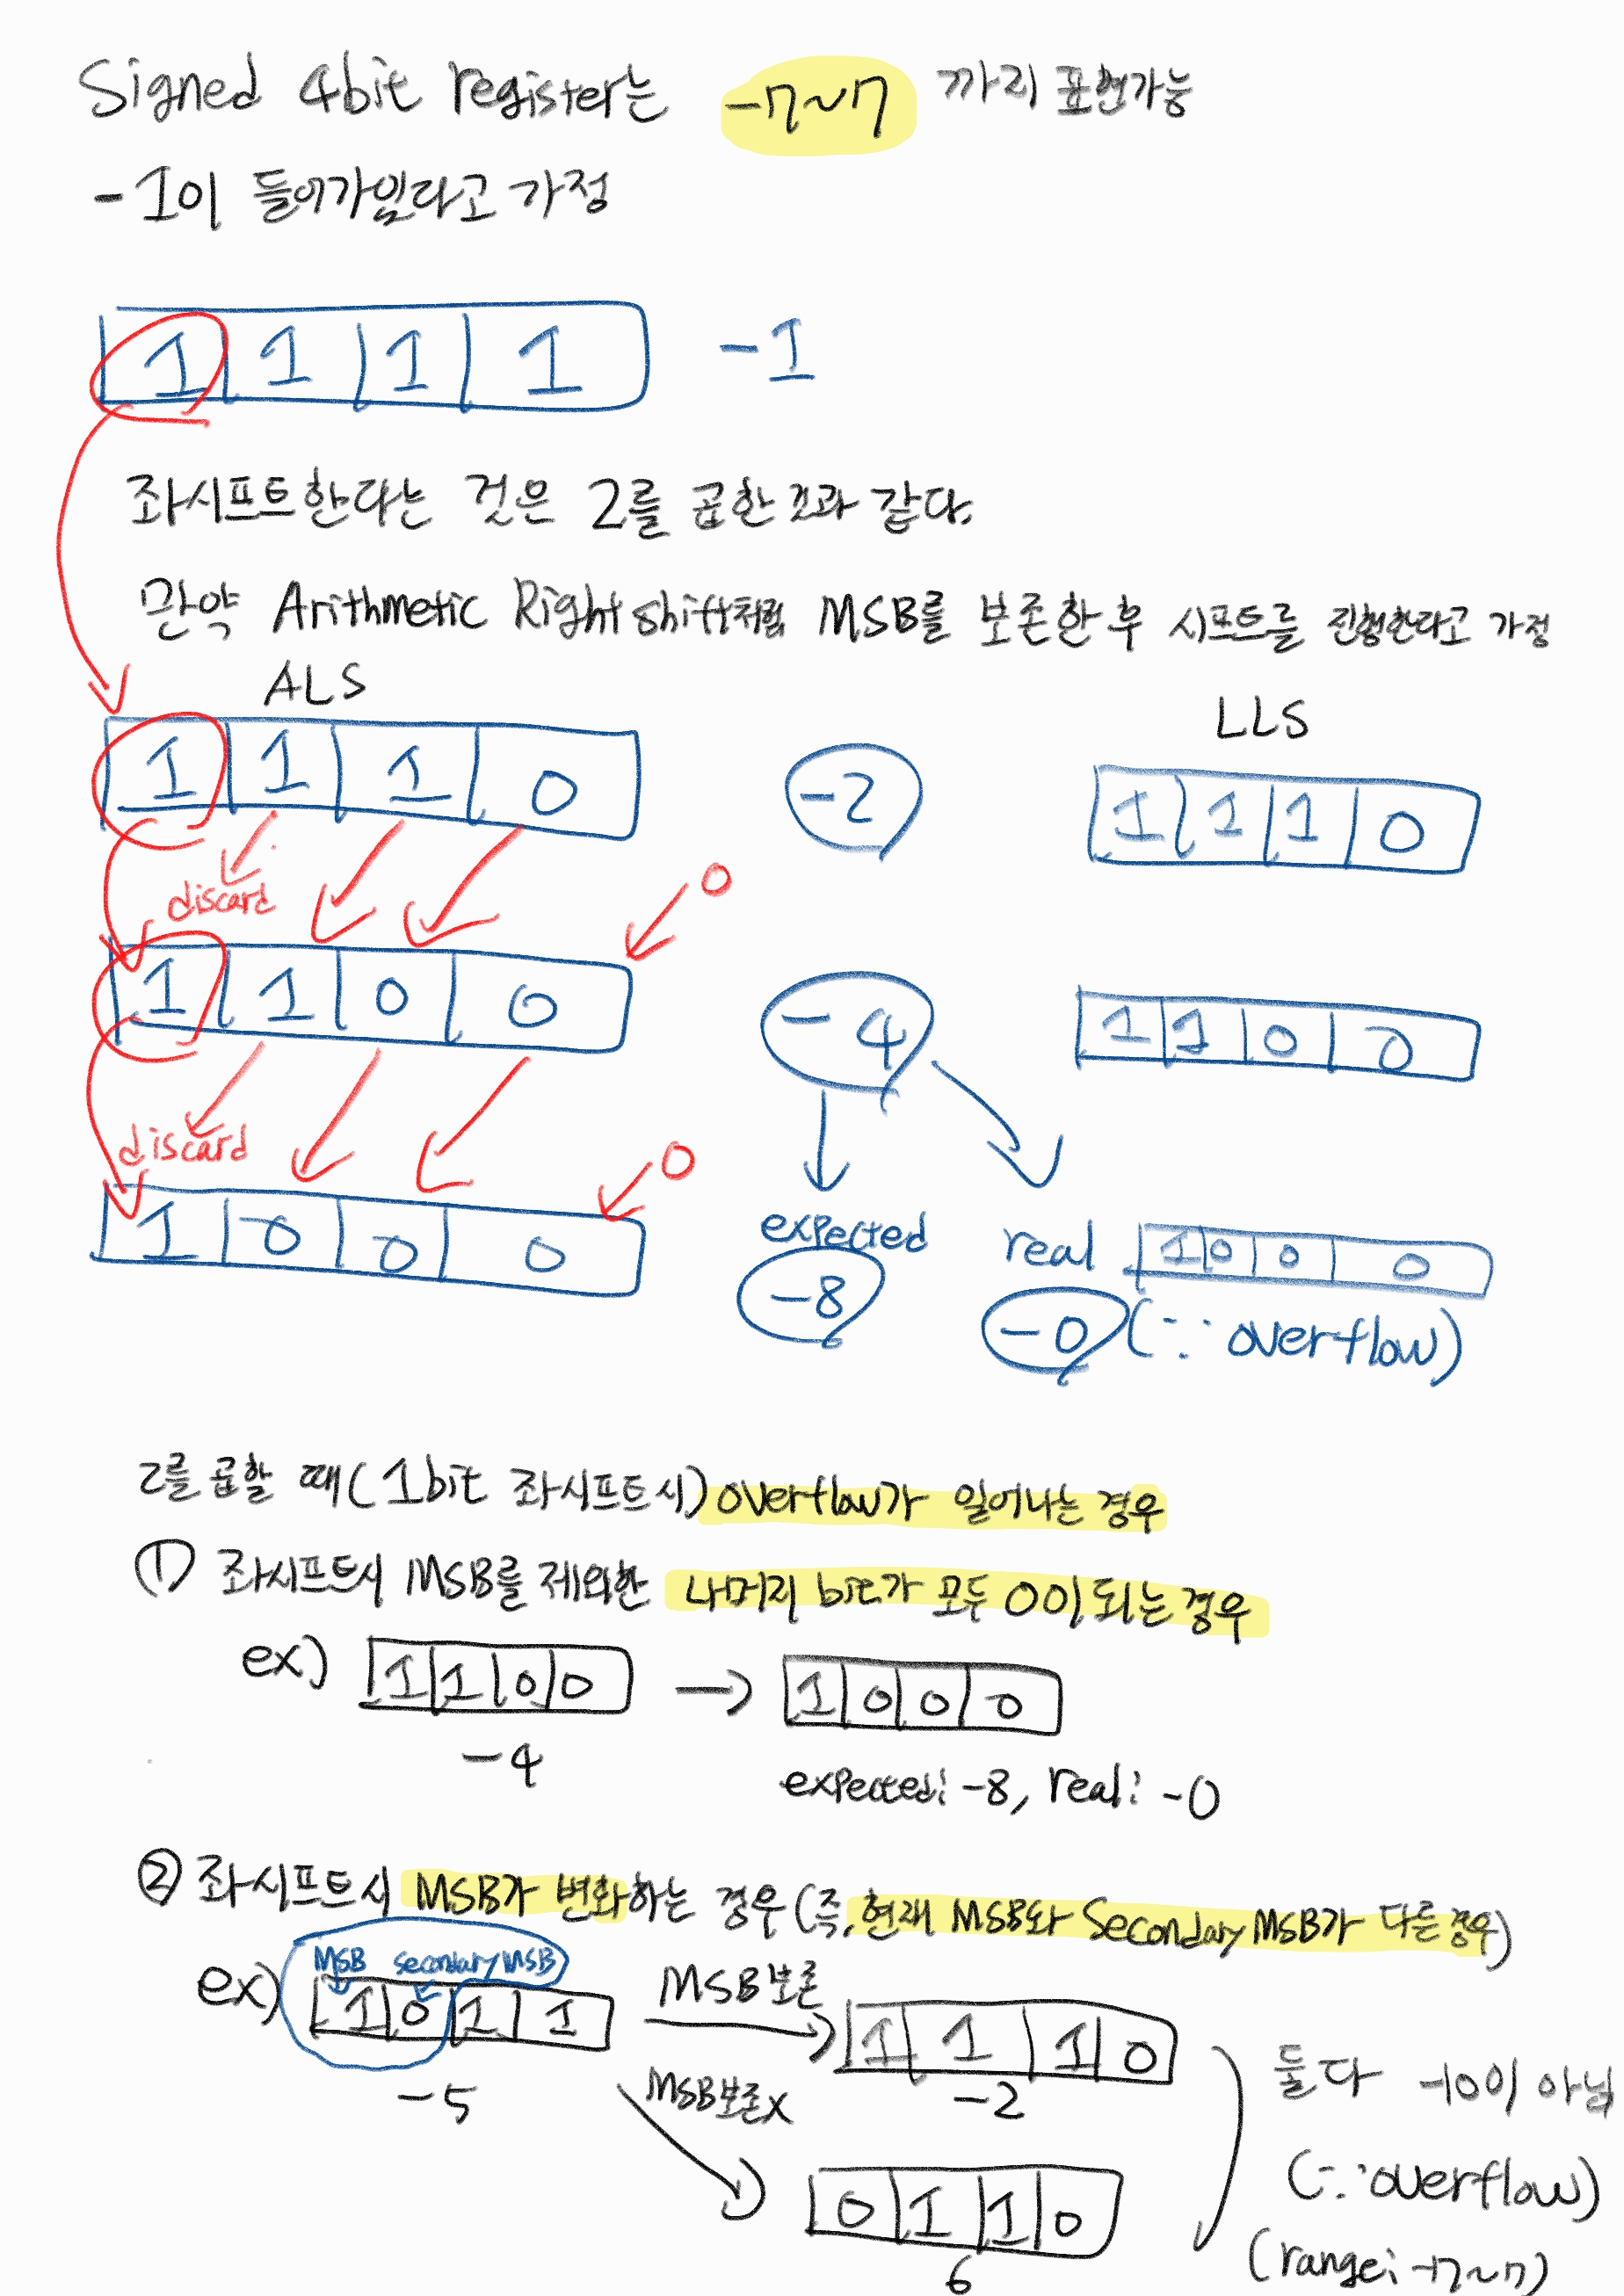 Signed 4bit register는 -7~7 까지 표현가능
-1이 들어가있다고 가정
1 1 1 1 -1
좌시프트한다는 것은 2를 곱한 것과 같다.
만약 Arithmetic Right shift처럼 MSB를 보존한 후 시프트를 진행한다고 가정
ALS
LLS
1 1 1 0
-2
1 1 1 0
discard
0
1 1 0 0
-4
1 1 0 0
discard
0
1 0 0 0
expected
-8
real
1 0 0 0
-0 (∵ overflow)
2를 곱할 때(1bit 좌시프트시) overflow가 일어나는 경우
① 좌시프트시 MSB를 제외한 나머지 bit가 모두 0이 되는 경우
ex) 1 1 0 0 → 1 0 0 0
-4
expected: -8, real: -0
② 좌시프트시 MSB가 변화하는 경우(즉, 현재 MSB와 Secondary MSB가 다른 경우)
MSB secondary MSB
ex) 1 0 1 1
-5
MSB보존
1 1 1 0
-2
MSB보존x
0 1 1 0
6
둘다 -10이 아님
(∵ overflow)
(range: -7~7)